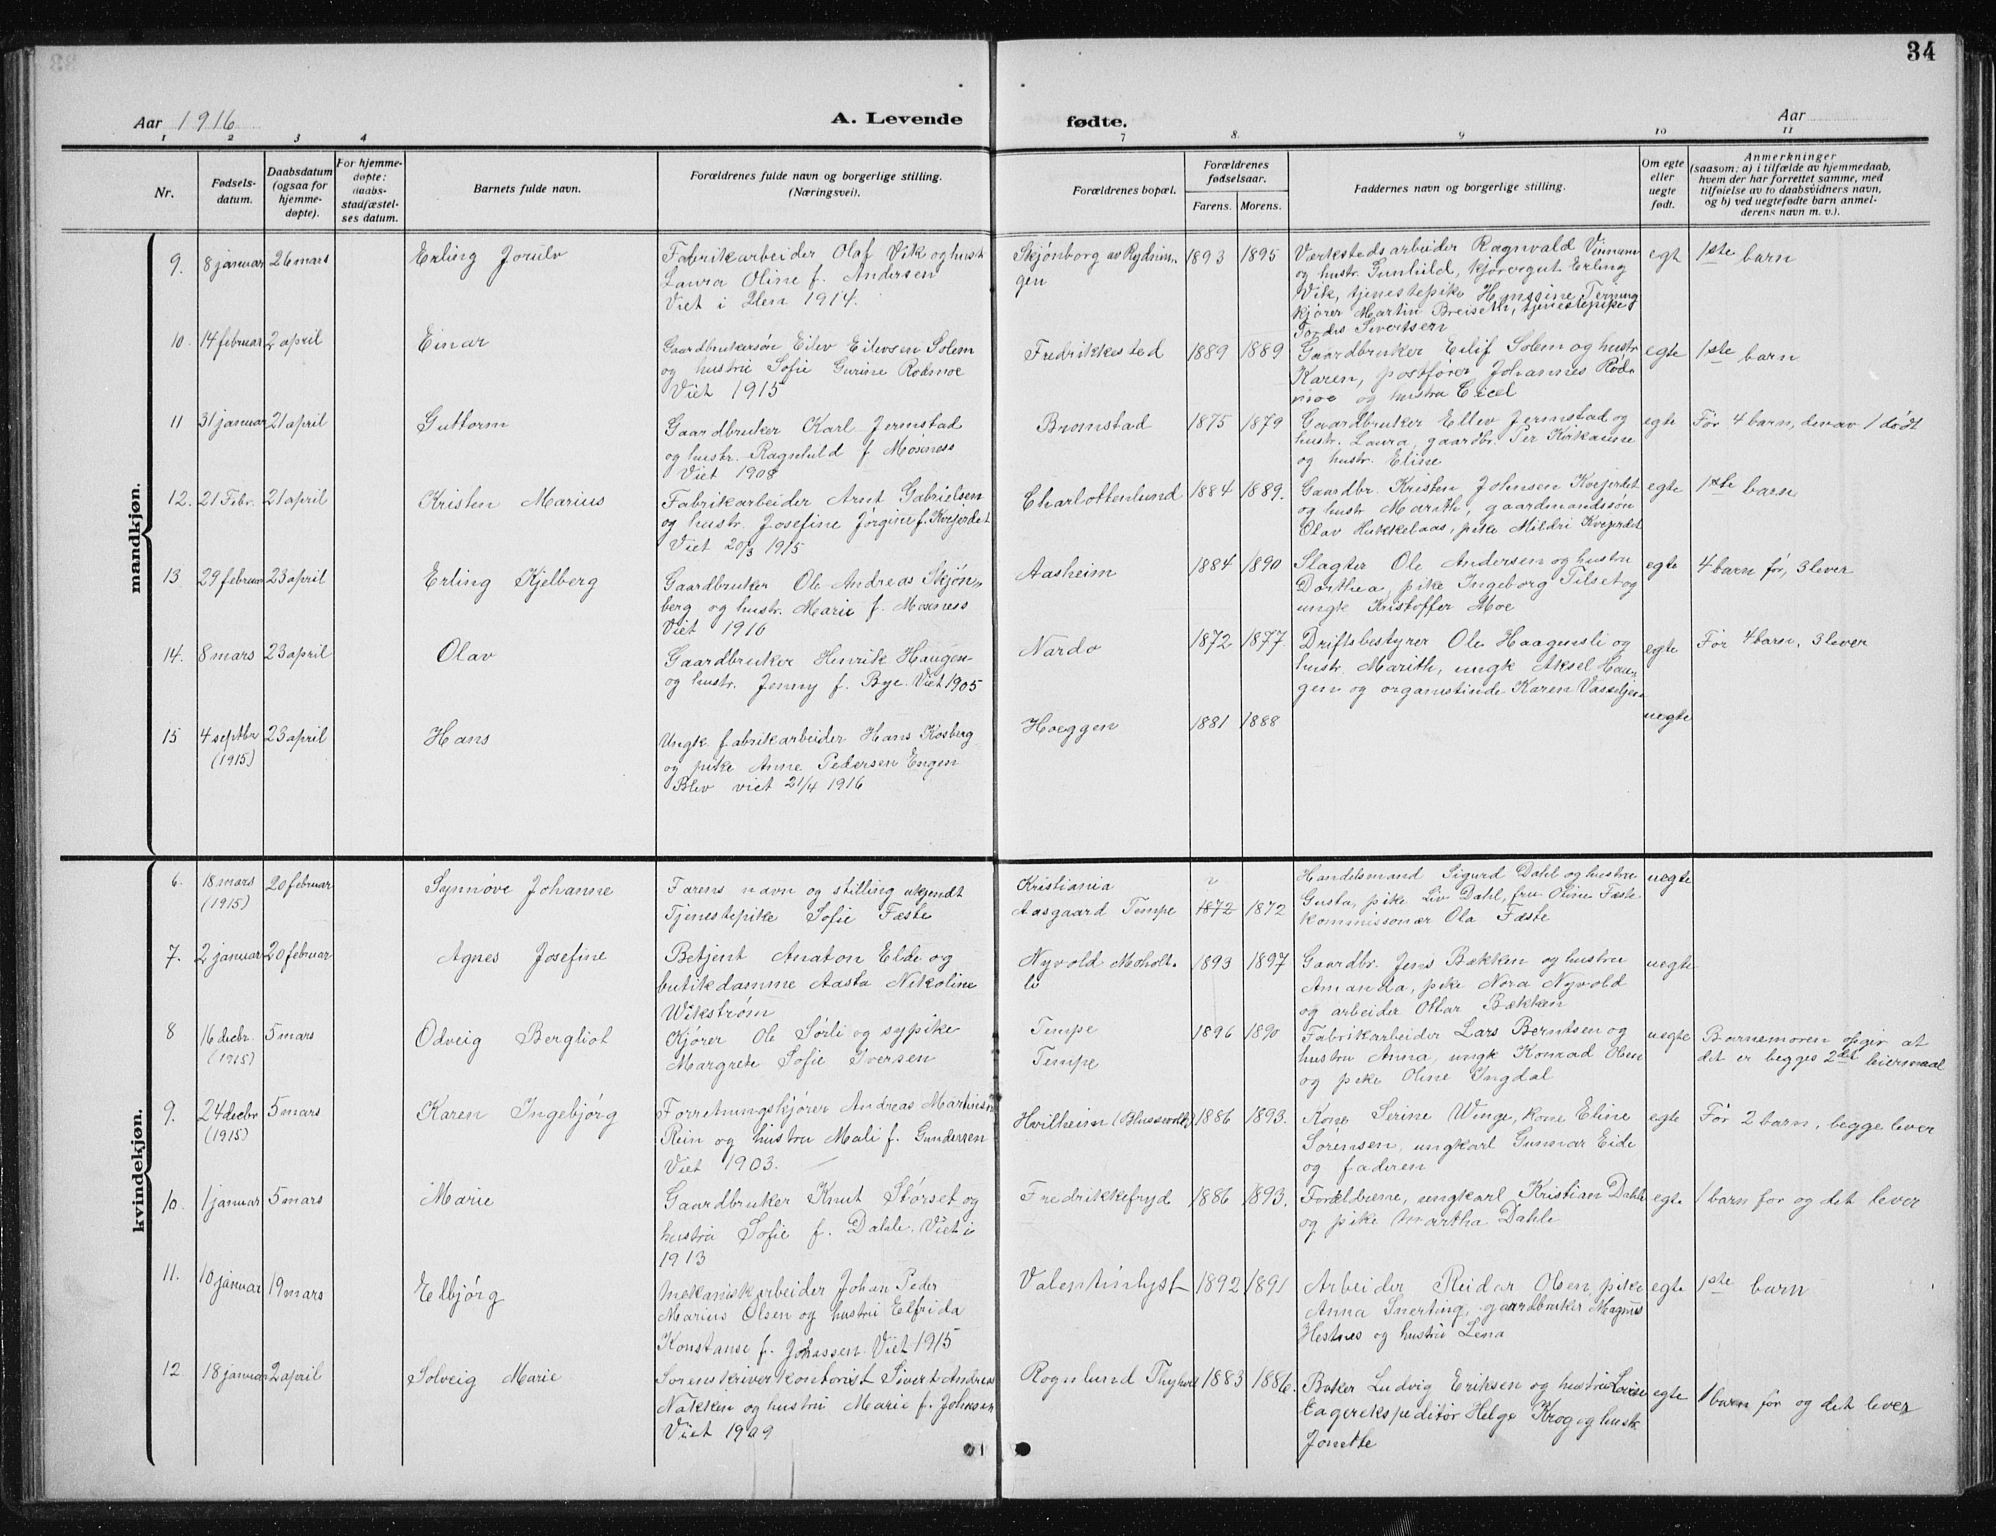 34
Aar 1916 A. Levende fødte. Aar
1 2 3 4 7 8. 9 10 11
Nr.
Fødsels-
datum.
Daabsdatum
(ogsaa for
hjemme-
døpte).
For hjemme-
døpte:
daabs-
stadfæstel-
ses datum.
Barnets fulde navn.
Forældrenes fulde navn og borgerlige stilling.
(Næringsvei).
Forældrenes bopæl.
Forældrenes
fødselsaar.
Farens. Morens.
Faddernes navn og borgerlige stilling.
Om egte
eller
uegte
født.
Anmerkninger
(saasom: a) i tilfælde av hjemmedaab,
hvem der har forrettet samme, med
tilføielse av to daabsvidners navn,
og b) ved uegtefødte barn anmel-
derens navn m. v.).
mandkjøn.
9. 8 januar 26 mars Erling
Fabrikarbeider Olaf Vik og hust
Laura Oline f. Andersen
Viet i 1914.
Skjønborg av
gen
1893 1895
Værkstedsarbeider Ragnvald
og hustr. Gunhild, kjørergut Erling
Vik, tjenestepike Hanssine
kjører Martin Breiseth, tjenestepike
Sivertsen
egt 1ste barn
10. 14 februar 2 april Einar
Gaardbrukersøn Eilev Eilevsen Solem
og hustru Sofie Gurine Rødmoe
Viet 1915
Fredrikkested 1889 1889
Gaardbruker Eilif Solem og hustr
Karen, postfører Johannes Rød-
moe og hustru
egte 1ste barn
11 31 januar 21 april Guttorm
Gaardbruker Karl Jermstad
og hustr. Ragnhild f. Mosness
Viet 1908
Bromstad 1875 1879
Gaardbruker Ellev Jermstad og
hustr. Laura, gaardbr. Per
og hustr. Eline
egte Før 4 barn, derav 1 dødt
12. 21 Febr. 21 april Kristen Marius
Fabrikarbeider Arnt Gabrielsen
og hustr. Josefine Jørgine f. Kvejerdet
Viet 20/3 1915
Charlottenlund 1884 1889.
Gaardbr. Kristen Johnsen Kvejerdet
og hustr Marith, gaardmandssøn
Olav Hukkelaas, pike Mildri Kvejerdet
egte 1ste barn
13 29 februar 23 april Erling Kjelberg
Gaardbruker Ole Andreas Skjøn-
berg og hustr. Marie f. Mosness
Viet 1910
Aasheim 1884 1890
Slagter Ole Andersen og hustru
Dorthea, pike Ingeborg Tilset og
ungk Kristoffer Moe
egte 4 barn før, 3 lever
14. 8 mars 23 april Olav
Gaardbruker Henrik Haugen
og hustr. Jenny f. Bye. Viet 1905
Nardo 1872 1877.
Driftsbestyrer Ole Haagensli og
hustr. Marith, ungk Aksel Hau-
gen og organistinde Karen
egte Før 4 barn, 3 lever
15 4 septbr 23 april Hans
(1915)
Ungk. fabrikarbeider Hans Kosberg
og pike Anne Pedersen Engen
Blev viet 21/4 1916
Hoeggen 1881 1888 uegte
kvindekjøn.
6. 18 mars 20 februar Synnøve Johanne
(1915)
Farens navn og stilling ukjendt
Tjenestepike Sofie Fæste
Kristiania
Aasgaard Tempe 1872 1872
Handelsmand Sigurd Dahl og hustru
Gusta, pike Liv Dahl, fru Oline Fæste
kommissonær Ola Fæste
uegte
7. 2 januar 20 februar Agnes Josefine
Betjent Anaton Elde og
butikdamme Aasta Nikoline
Wikstrøm
Nyvold Moholt-
li
1893 1897
Gaardbr. Jens Bækken og hustru
Amanda, pike Nora Nyvold
og arbeider Ottar Bækken
uegte
8 16 decbr. 5 mars Odveig Bergliot
(1915)
Kjører Ole Sørli og sypike
Margrete Sofie Iversen
Tempe
Tempe
1896 1890
Fabrikarbeider Lars Berntsen og
hustru Anna, ungk Konrad Olsen
og pike Oline Ingdal
uegte
Barnemoren opgir at
det er begges 2det leiermaal
9. 24 decbr 5 mars Karen Ingebjørg
(1915)
Forretningskjører Andreas Martinsen
Rein og hustru Mali f. Gundersen
Viet 1903.
Hvilheim 1886 1893.
Kone Serine Winge, kone Eline
Sørensen, ungkarl Gunnar Eide
og faderen
egte Før 2 barn, begge lever
10. 1 januar 5 mars Marie
Gaardbruker Knut Størset og
hustru Sofie f. Dahle. Viet i
1913
Fredrikkefryd 1886 1893.
Forældrene, ungkarl Kristian Dahle
og pike Martha Dahle
egte 1 barn for og det lever
11. 10 januar 19 mars Elbjørg
Mekaniskarbeider Johan Peder
Marius Olsen og hustru Elfrida
Konstanse f. Johassen. Viet 1915
Valentinlyst 1892 1891
Arbeider Reidar Olsen, pike
Anna Snerting, gaardbruker Magnus
Hestnes og hustru Lena
egte 1ste barn
12 18 januar 2 april Solveig Marie
Sorenskriverkontorist Sivert Andreas
Nakken og hustru Marie f. Johnsen
Viet 1909
Rognlund 1883 1886.
Baker Ludvig Eriksen og hustru
Lagerekspeditør Helge Krog og hustr
Jonette
egte 1 barn før og det lever